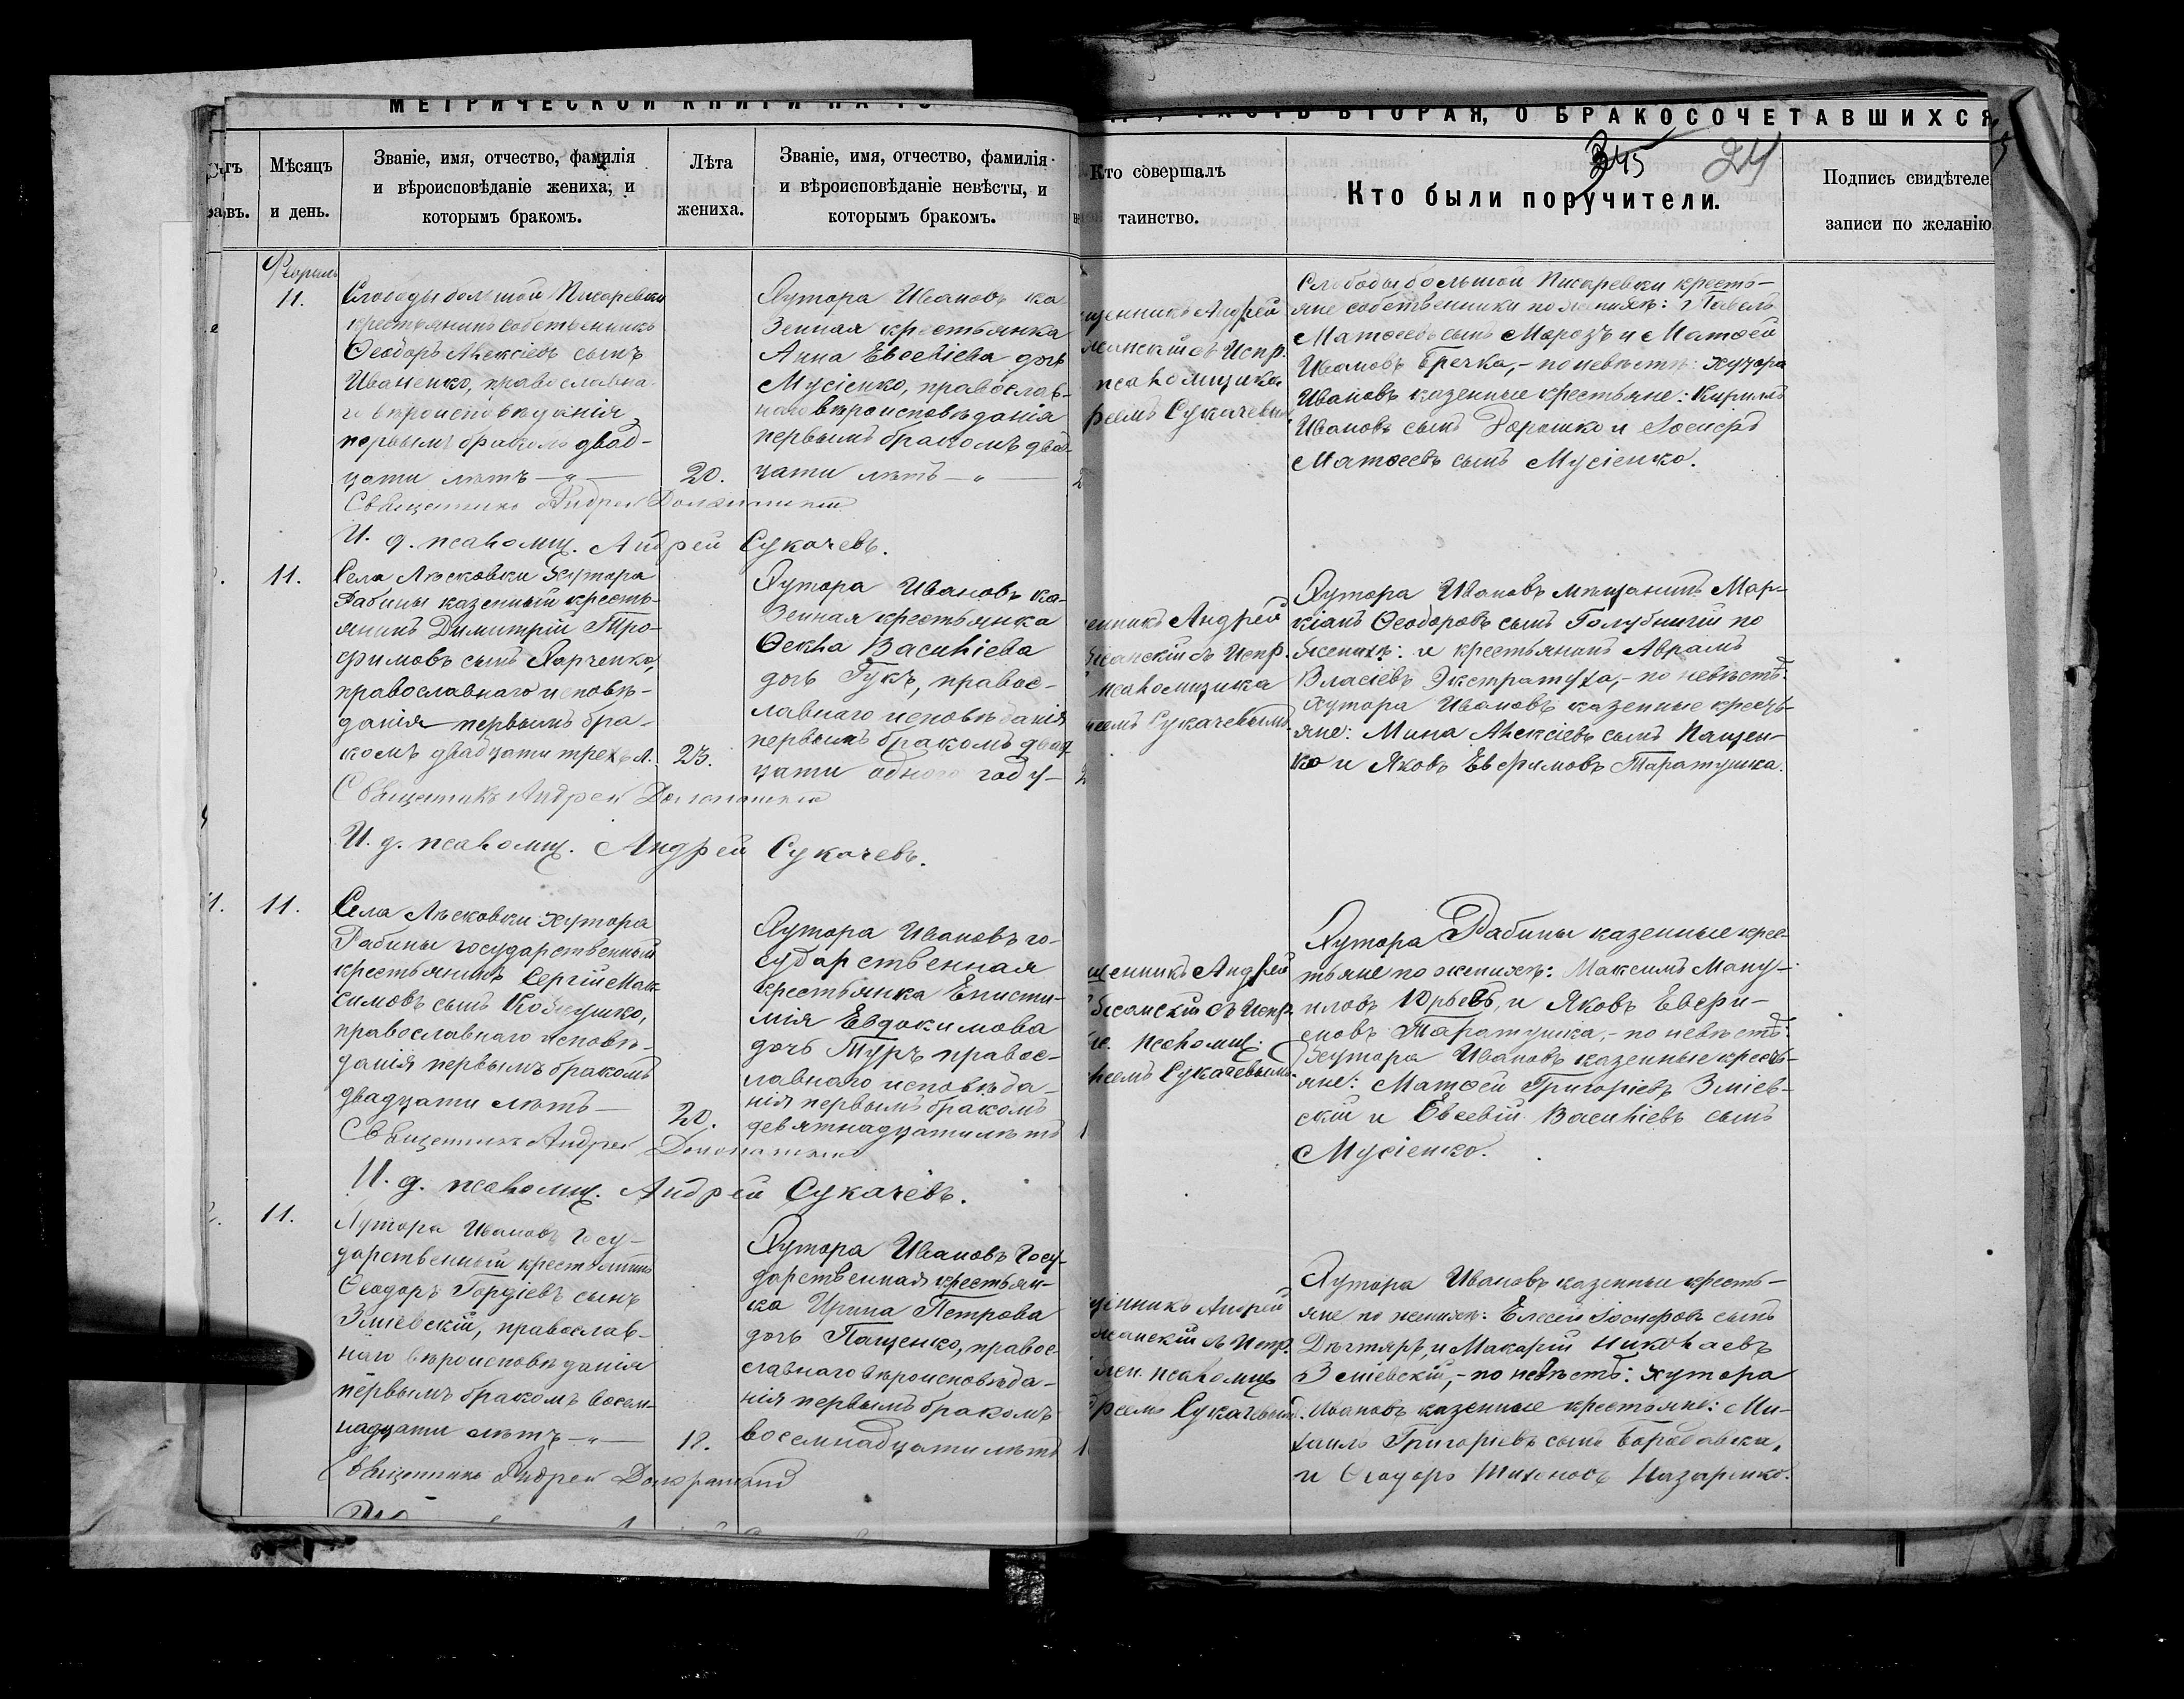 МЕТРИЧЕСКОЙ КНИГИ НА 18
ЧАСТЬ ВТОРАЯ, О БРАКОСОЧЕТАВШИХСЯ
345 24
Мѣсяцъ
и день.
Званіе, имя, отчество, фамилія
и вѣроисповѣданіе жениха, и
которымъ бракомъ.
Лѣта
жениха.
Званіе, имя, отчество, фамилія
и вѣроисповѣданіе невѣсты, и
которымъ бракомъ.
Кто совершалъ
таинство.
Кто были поручители.
Подпись свидѣтеле
записи по желанію
11.
Слободы большой Писаревки
крестьянинъ собственникъ
Ѳеодоръ Алексіевъ сынъ
Иваненко, православна-
го вѣроисповѣданія
первымъ бракомъ двад-
цати лѣтъ —„—
20.
Хутора Ивановъ ка
зенная крестьянка
Анна Евсевіева дочь
Мусіенко, православ-
наго вѣроисповѣданія
первымъ бракомъ двад-
цати лѣтъ —„—
щенникъ Андрей
псаломщика
реемъ Сукачевым
Слободы большой Писаревки кресть-
яне собственники по женихѣ: Павелъ
Матѳеевъ сынъ Морозъ и Матѳей
Ивановъ Гречка, - по невѣстѣ: хутора
Ивановъ казенные крестьяне: Кириллъ
Ивановъ сынъ Дорошко и Іосифъ
Матѳеевъ сынъ Мусіенко.
Священникъ Андрей
И. д. псаломщ. Андрей Сукачевъ.
11.
Села Лѣсковки хутора
Рабины казенный кресть-
янинъ Димитрій Тро-
фимовъ сынъ Харченко,
православнаго исповѣ-
данія первымъ бра-
комъ двадцати трехъ л.
23.
Хутора Ивановъ ка-
зенная крестьянка
Ѳекла Василіева
дочь Гукъ, правос-
лавнаго исповѣданія
первымъ бракомъ двад
цати одного году —
енникъ Андрей
псаломщика
реемъ Сукачевымъ
Хутора Ивановъ мѣщанинъ Мар-
кіанъ Ѳеодоровъ сынъ Голубничій по
женихѣ: и крестьянинъ Аврамъ
Власіевъ Экстратуха, - по невѣстѣ:
Хутора Ивановъ казенные кресть-
яне: Мина Алексіевъ сынъ Пащен-
ко и Яковъ Евфимовъ Таратушка.
Священникъ Андрей
И. д. псаломщ. Андрей Сукачевъ.
11.
Села Лѣсковки хутора
Рабины государственный
крестьянинъ Сергій Мак-
симовъ сынъ
православнаго исповѣ-
данія первымъ бракомъ
двадцати лѣтъ —
20.
Хутора Ивановъ го-
сударственная
крестьянка Еписти-
мія Евдокимова
дочь Туръ правос-
лавнаго исповѣда-
нія первымъ бракомъ
девятнадцати лѣтъ
щенникъ Андрей
псаломщ.
реемъ Сукачевымъ
Хутора Рабины казенные крес-
тьяне по женихѣ: Максимъ Ману-
иловъ Юрьевъ, и Яковъ Евфи-
мовъ Таратушка, - по невѣстѣ:
Хутора Ивановъ казенные кресть-
яне: Матѳей Григоріевъ Зміев-
скій и Евсевій Василіевъ сынъ
Мусіенко.
Священникъ Андрей
И. д. псаломщ. Андрей Сукачевъ.
11.
Хутора Ивановъ Госу-
дарственный крестьянинъ
Ѳеодоръ Гордіевъ сынъ
Зміевскій, православ-
наго вѣроисповѣданія
первымъ бракомъ восем-
надцати лѣтъ —„—
18.
Хутора Ивановъ Госу-
дарственная крестьян-
ка Ирина Петрова
дочь Пащенко, правос-
лавнаго вѣроисповѣда-
нія первымъ бракомъ
восемнадцати лѣтъ
щенникъ Андрей
псаломщ
реемъ Сукачевым
Хутора Ивановъ казенные кресть-
яне по женихѣ: Елисей Іосифовъ сынъ
Дегтярь, и Макарій Николаевъ
Зміевскій, - по невѣстѣ: хутора
Ивановъ казенные крестьяне: Ми-
хаилъ Григоріевъ сынъ
и Ѳеодоръ Тихоновъ Назаренко.
Священникъ Андрей